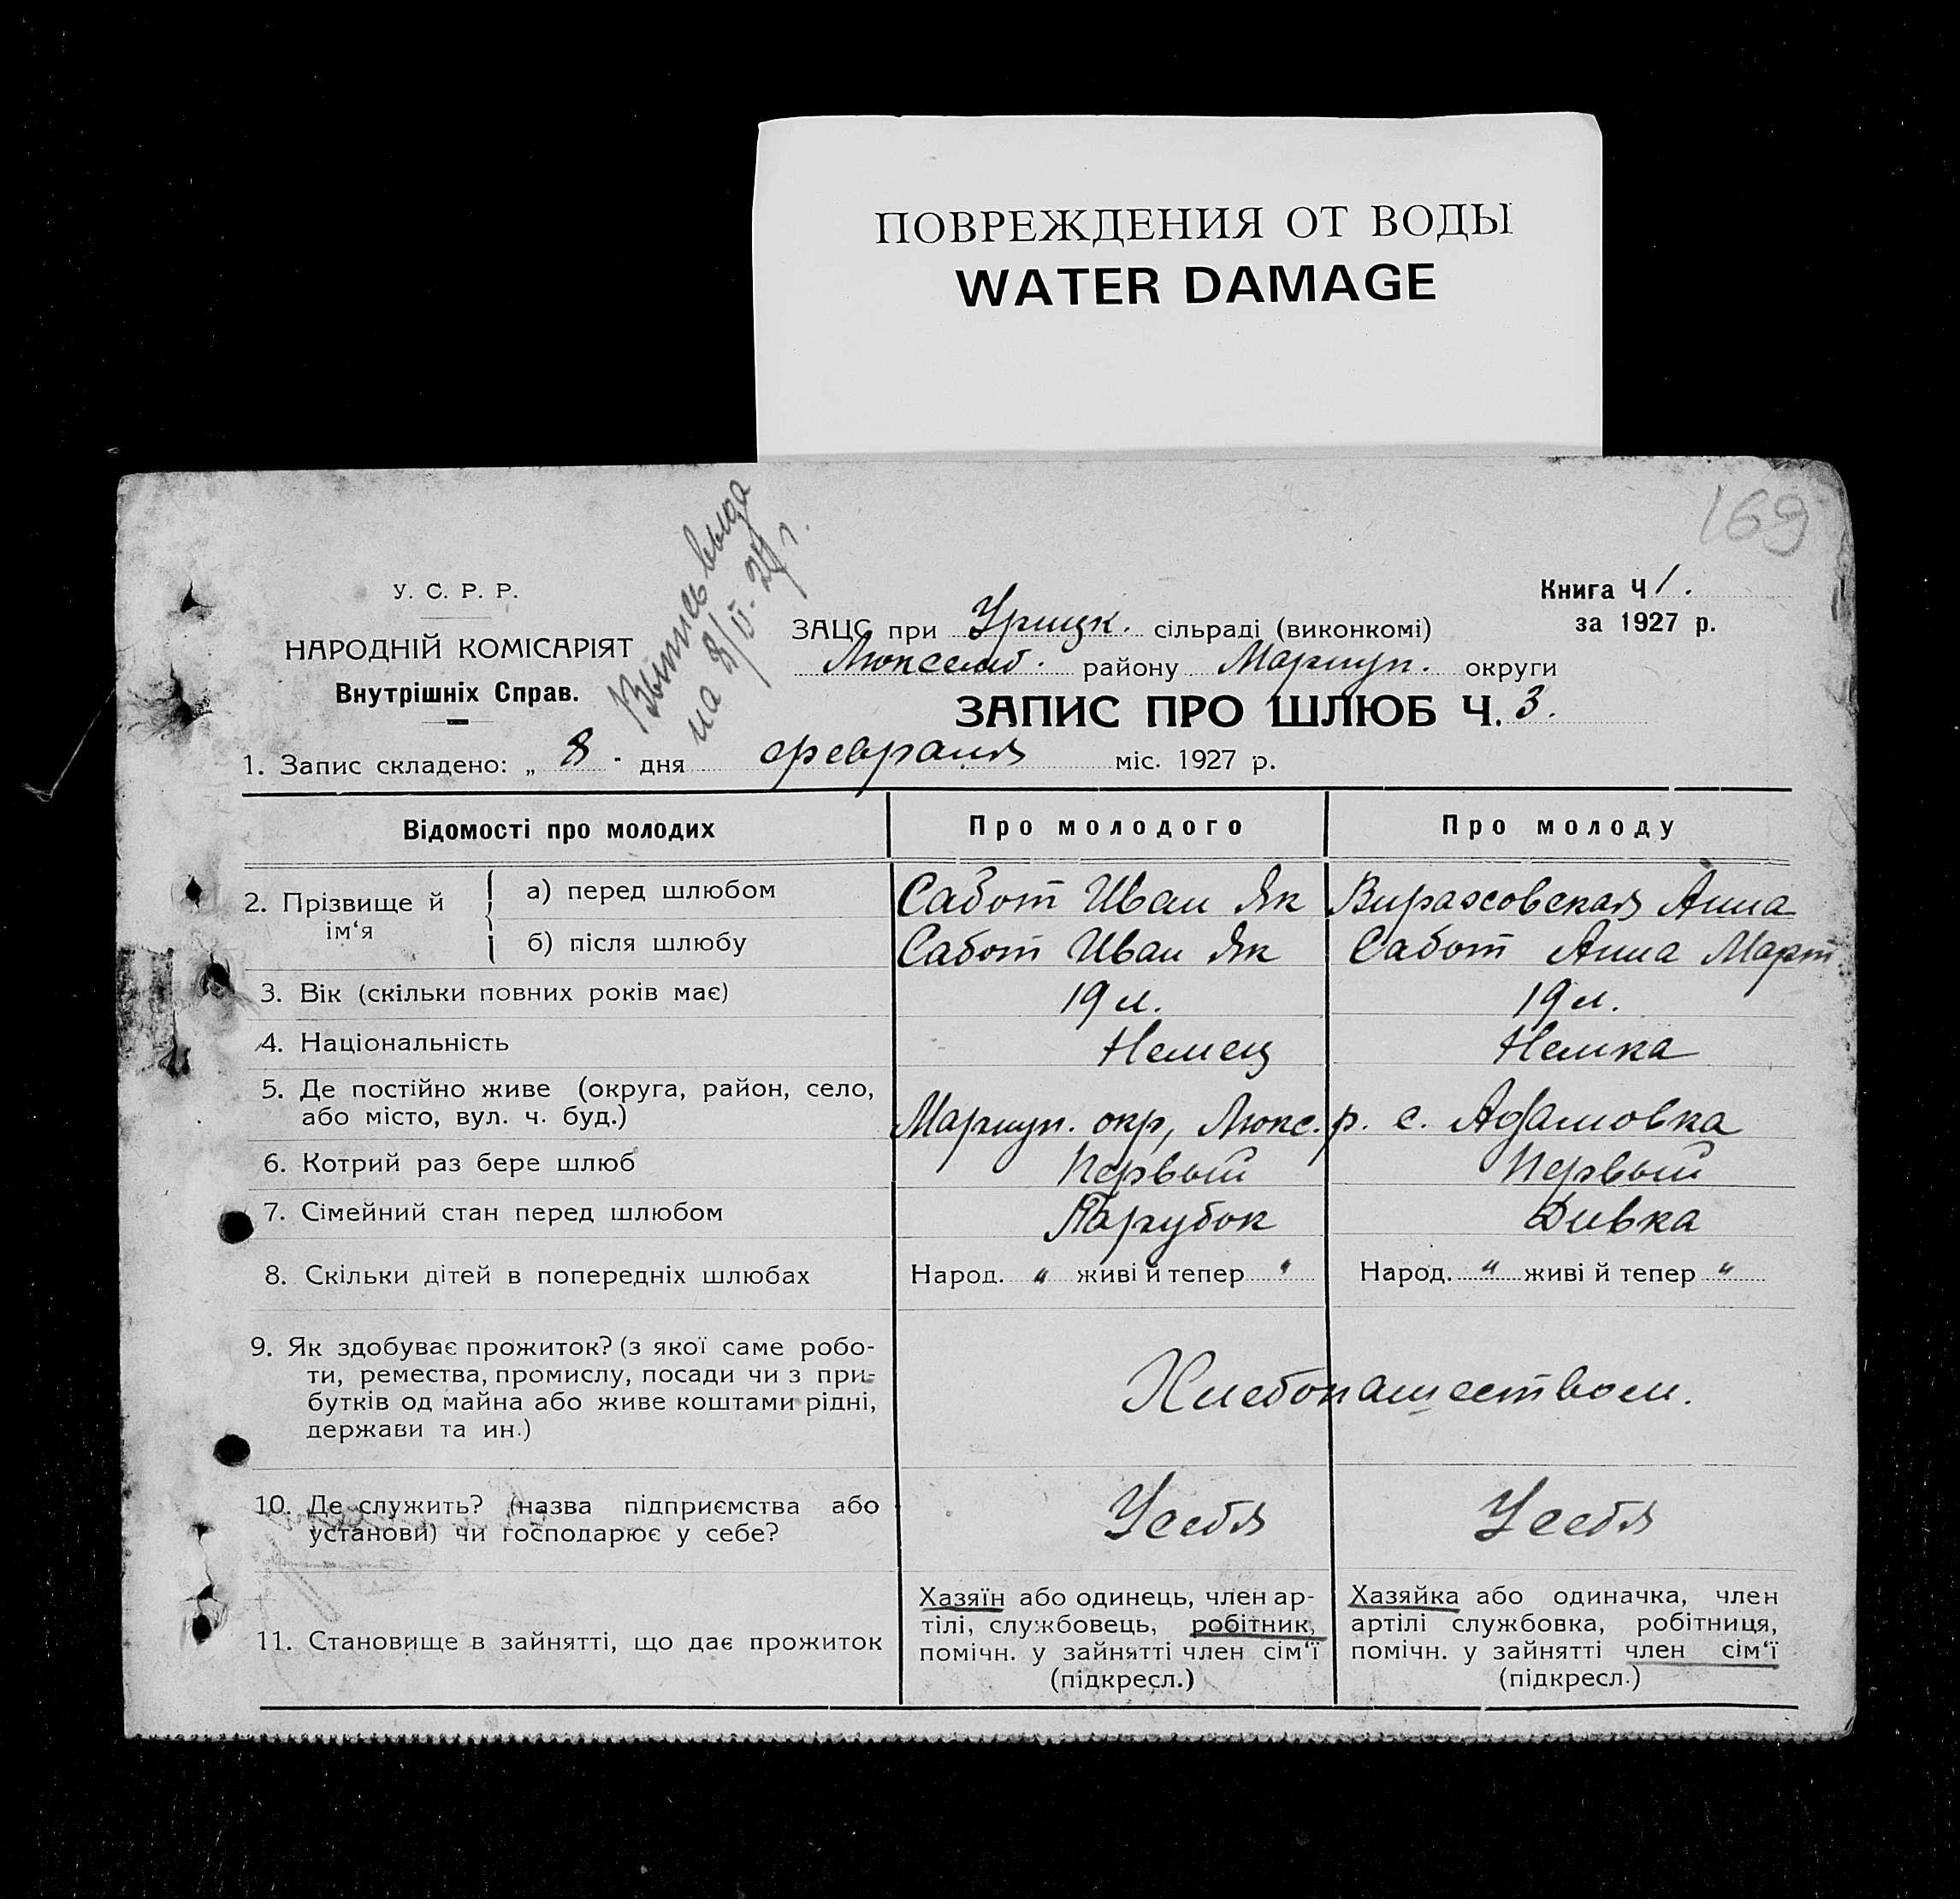 ПОВРЕЖДЕНИЯ ОТ ВОДЫ
WATER DAMAGE
169
У. С. Р. Р.
НАРОДНІЙ КОМІСАРІЯТ
Внутрішніх Справ.
на 8/II-27 г.
Книга Ч 1.
за 1927 р.
ЗАЦС при Урицк. сільраді (виконкомі)
Люксемб. району Мариуп. округи
ЗАПИС ПРО ШЛЮБ Ч. 3.
1. Запис складено: „ 8 " дня февраля міс. 1927 р.
Відомості про молодих Про молодого Про молоду
2. Прізвище й ім‘я
а) перед шлюбом Сабот Иван Як Анна
б) після шлюбу Сабот Иван Як Сабот Анна Март.
3. Вік (скільки повних років має) 19 л. 19 л.
4. Національність Немец Немка
5. Де постійно живе (округа, район, село,
або місто, вул. ч. буд.) Мариуп. окр, Люкс. р. с. Адамовка
6. Котрий раз бере шлюб Первый Первый
7. Сімейний стан перед шлюбом Парубок Дивка
8. Скільки дітей в попередніх шлюбах Народ. " живі й тепер " Народ. " живі й тепер "
9. Як здобуває прожиток? (з якої саме робо-
ти, ремества, промислу, посади чи з при-
бутків од майна або живе коштами рідні,
держави та ин.)
Хлебопашеством.
10. Де служить? (назва підприємства або
установи) чи господарює у себе?
У себя У себя
11. Становище в зайнятті, що дає прожиток
Хазяїн або одинець, член ар-
тілі, службовець, робітник,
помічн. у зайнятті член сім‘ї
(підкресл.)
Хазяйка або одиначка, член
артілі службовка, робітниця,
помічн. у зайнятті член сім‘ї
(підкресл.)